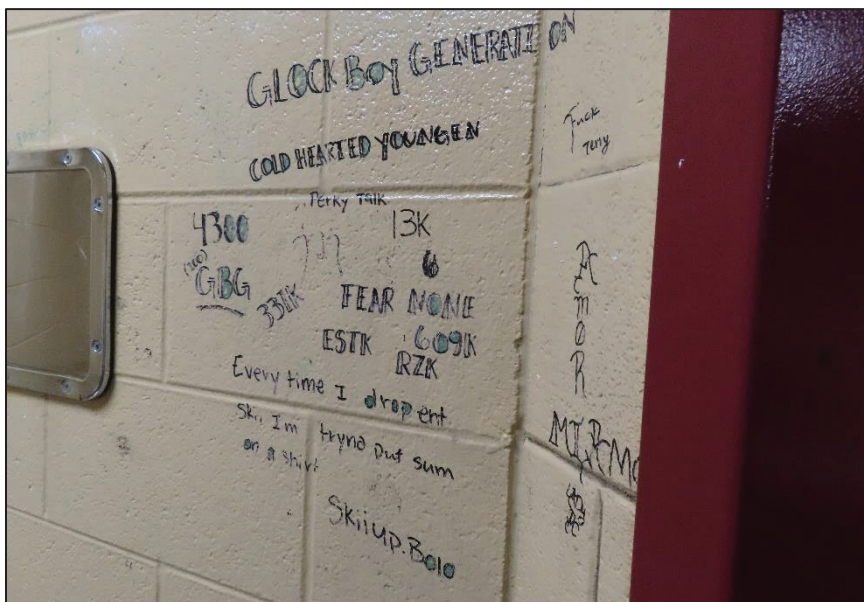 GLOCK Boy GENERATION
COLD HEARTED YOUNGEN
Perky Talk
4300
13K
6
(100)
GBG
33EK
FEAR NONE
ESTK 609K
RZK
Every time I drop ent
Ski, Im tryna put sum
on a shirt
Skiiup.Bolo
Fuck
Tony
AmoR